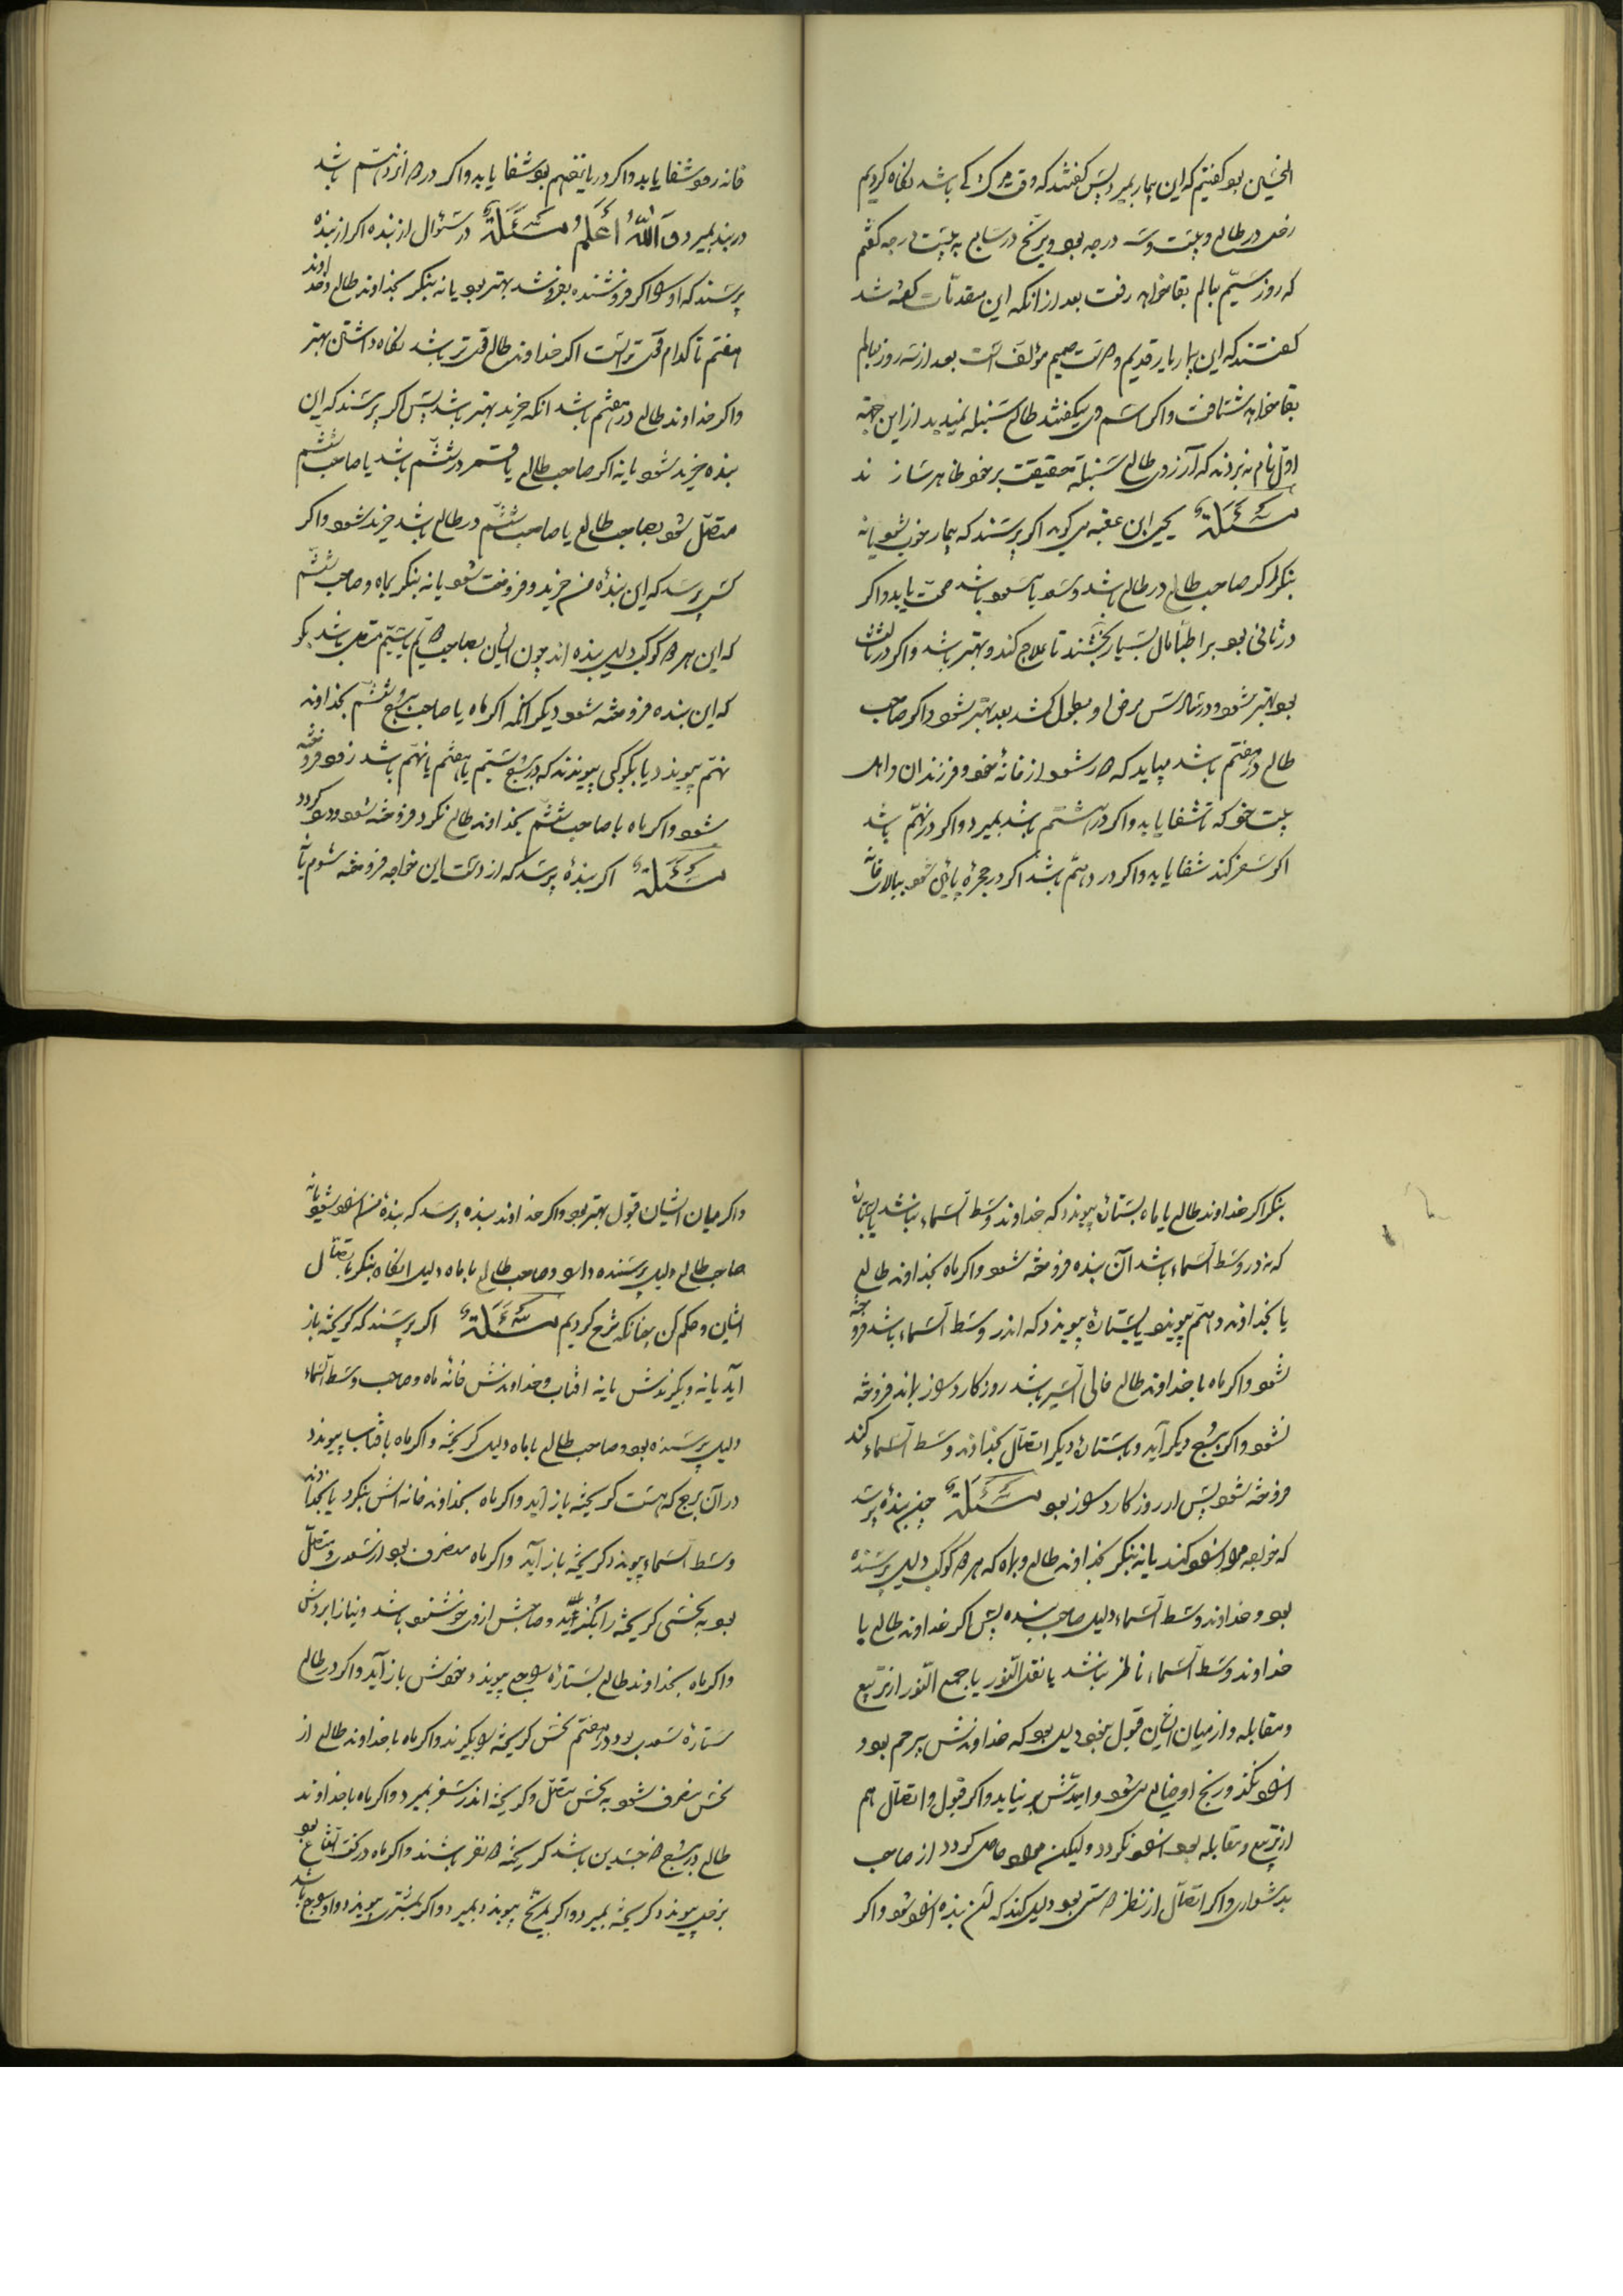 الحسین بو کفتیم که این بیمار بمیرد پس کفتند که وقت مرک کی باشد نکاه کردیم
زحل در طالع و بیست و سه درجه بود و مریخ در سابع به بیست درجه کفتم
که روز سیّم بعالم بقا خواهد رفت بعد از انکه این مقدمات کفته شد
کفتند که این بیمار یار قدیم و دوست صمیم مؤلف است بعد از سه روز بعالم
بقا خواهد شتافت واکر اسم وی میکفتند طالع سنبله نمیدید از این جهة
اوّل نام نه بردند که آرزوی طالع سنبله حقیقت بر خود ظاهر سازند
مَسْئَلَةٌ یحیی ابن عقبه می کوید اکر پرسند که بیمار خوب شود یا نه
بنکر اکر صاحب طالع در طالع باشد و سعد یا مسعود باشد صحت یابد واکر
در ثانی بود بر اطبّا مال بسیار بخشند تا علاج کند و بهتر باشد واکر در ثالث
بود بهتر شود و در شالرس مرض او بطول کشد بعد بهتر شود واکر صاحب
طالع در هفتم باشد میباید که دور شود از خانهٔ خود و فرزندان و اهل
بیت خود که تا شفا یابد واکر در هشتم باشد بمیرد واکر در نهم باشد
اکر سفر کند شفا یابد واکر در دهم باشد اکر در حجره پائین شود ببالا خانه
خانه رود شفا یابد واکر در یازدهم بود شفا یابد واکر در دوازدهم باشد
در بند بمیرد وَاللّٰهُ اَعْلَم مَسْئَلَةٌ در سئوال از بنده اکر از بنده
پرسند که او را اکر فروشنده بفروشد بهتر بود یا نه بنکر بخداوند طالع و خداوند
هفتم تا کدام قوی تر است اکر خداوند طالع قوی تر باشد نکاه داشتن بهتر
واکر خداوند طالع در هفتم باشد انکه خرید بهتر باشد پس اکر پرسند که این
بنده خرید شود یا نه اکر صاحب طالع یا قمر در ششم باشد یا صاحب ششم
متصل شود بصاحب طالع یا صاحب ششم در طالع باشد خرید شود واکر
کسی پرسد که این بندهٔ من خرید و فروخت شود یا نه بنکر بماه و صاحب ششم
که این هر دو کوکب دلیل بنده اند چون ایشان بصاحب سیّم یا ششم متصل باشد بکو
که این بنده فروخته شود دیکر انکه اکر ماه یا صاحب برج ششم بخداوند
نهم پیوندد یا بکوکبی پیوندند که در برج سیّم یا هفتم یا نهم باشد زود فروخته
شود واکر ماه با صاحب ششم بخداوند طالع نکرد فروخته شود و رد کردد
مَسْئَلَةٌ اکر بندهٔ پرسد که از دست این خواجه فروخته شوم یا نه
بنکر اکر خداوند طالع یا ماه بستارهٔ پیوندد که خداوند وسط السماء نباشد یا بستارهٔ
که نه در وسط السماء باشد آن بنده فروخته شود واکر ماه بخداوند طالع
یا بخداوند دهم پیوندد یا بستارهٔ پیوندد که اندر وسط السماء باشد فروخته
نشود واکر ماه با خداوند طالع خالی السیر باشد روزکار دراز بماند فروخته
نشود واکر ببرج دیکر آید و با ستارهٔ دیکر اتصال بخداوند وسط السماء کند
فروخته شود پس از روزکار دراز بود مَسْئَلَةٌ چون بندهٔ پرسد
که خواجه مرا ازاد کند یا نه بنکر بخداوند طالع و بماه که هر دو کوکب دلیل پرسنده
بود و خداوند وسط السماء دلیل صاحب بنده پس اکر خداوند طالع با
خداوند وسط السماء ناظر نباشد یا نقل النور یا جمع النور از تربیع
و مقابله و از میان ایشان قبول نبود دلیل بود که خداوندش بیرحم بود و
ازاد نکند و رنج او ضایع می شود و امیدش بر نیاید واکر قبول و اتصال هم
از تربیع و مقابله بود ازاد نکردد و لیکن مراد حاصل کردد از صاحب
بدشواری واکر اتصال از نظر دوستی بود دلیل کند که این بنده ازاد شود واکر
واکر میان ایشان قبول بهتر بود واکر خداوند بنده پرسد که بندهٔ من ازاد شود یا نه
صاحب طالع دلیل پرسنده دار و صاحب طالع با ماه دلیل انکاه بنکر باتصال
ایشان و حکم کن چنانکه شرح کردیم مَسْئَلَةٌ اکر پرسند که کریخته باز
آید یا نه و بکیرندش یا نه افتاب و خداوندش خانهٔ ماه و صاحب وسط السماء
دلیل پرسنده بود و صاحب طالع با ماه دلیل کریخته واکر ماه بافتاب پیوندد
در آن برج که هست کریخته باز آید واکر ماه بخداوند خانه اش بنکرد یا بخداوند
وسط السماء پیوندد کریخته باز آید واکر ماه منصرف بود از سعدی و متصل
بود به نحسی کریخته را بکیرند و صاحبش از وی خوشنود باشد و نیازاردش
واکر ماه بخداوند طالع بستارهٔ راجع پیوندد بخودش باز آید واکر در طالع
ستارهٔ سعد بود و در هفتم نحس کریخته را بکیرند واکر ماه با خداوند طالع از
نحس منصرف شود به نحس متصل و کریخته اندر سفر بمیرد واکر ماه با خداوند
طالع در برج ذو جسدین باشد کریخته دو نفر باشند واکر ماه در تحت الشعاع بود
بزحل پیوندد کریخته بمیرد واکر بمریخ پیوندد بمیرد واکر بمشتری پیوندد و او راجع باشد